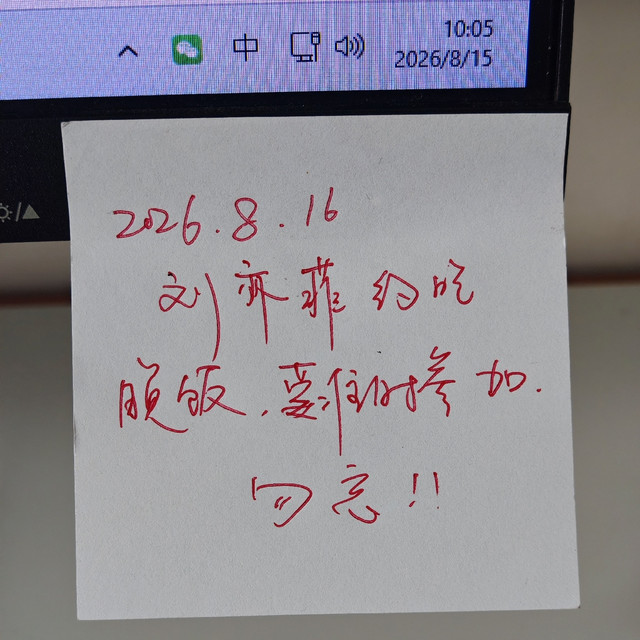 中
10:05
2026/8/15
2026.8.16
刘亦菲约吃
晚饭,要准时参加.
勿忘!!